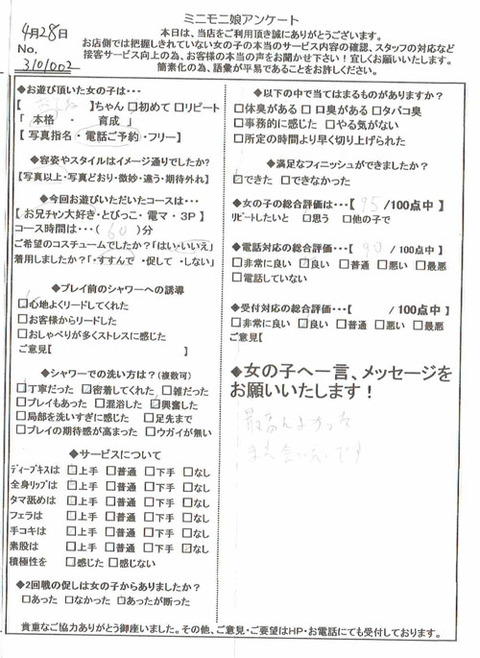 ミニモニ娘アンケート
4月28日
No.
3101002
本日は、当店をご利用頂き誠にありがとうございます。
お店側では把握しきれていない女の子の本当のサービス内容の確認、スタッフの対応など
接客サービス向上の為、お客様の本当の声をお聞かせ下さい！宜しくお願いいたします。
簡素化の為、語彙が平易であることをお許しください。
◆お遊び頂いた女の子は…
【 】ちゃん □初めて □リピート
「 本格 ・ 育成 」
【 写真指名・電話ご予約・フリー】
◆容姿やスタイルはイメージ通りでしたか?
【写真以上・写真どおり・微妙・違う・期待外れ】
◆今回お遊びいただいたコースは…
【 お兄チャン大好き・とびっこ・電マ・3P 】
コース時間は…( 60 )分
ご希望のコスチュームでしたか?「はい・いいえ」
着用しましたか?「・すすんで ・促して ・しない」
◆プレイ前のシャワーへの誘導
□心地よくリードしてくれた
□お客様からリードした
□おしゃべりが多くストレスに感じた
ご意見【 】
◆シャワーでの洗い方は？(複数可)
□丁寧だった □密着してくれた □雑だった
□プレイもあった □混浴した □興奮した
□局部を洗いすぎに感じた □足先まで
□プレイの期待感が高まった □ウガイが無い
◆サービスについて
ディープキスは □上手 □普通 □下手 □なし
全身リップは □上手 □普通 □下手 □なし
タマ舐めは □上手 □普通 □下手 □なし
フェラは □上手 □普通 □下手 □なし
手コキは □上手 □普通 □下手 □なし
素股は □上手 □普通 □下手 □なし
積極性を □感じた □感じない
◆2回戦の促しは女の子からありましたか？
□あった □なかった □あったが断った
◆以下の中で当てはまるものがありますか？
□体臭がある □口臭がある □タバコ臭
□事務的に感じた □やる気がない
□所定の時間より早く切り上げられた
◆満足なフィニッシュができましたか？
□できた □できなかった
◆女の子の総合評価は…【 95 /100点中 】
リピートしたいと □思う □他の子で
◆電話対応の総合評価…【 90 /100点中】
□非常に良い □良い □普通 □悪い □最悪
□電話していない
◆受付対応の総合評価…【 /100点中】
□非常に良い □良い □普通 □悪い □最悪
ご意見【 】
◆女の子へ一言、メッセージを
お願いいたします！
最高によかった
また会いたいです
貴重なご協力ありがとう御座いました。その他、ご意見・ご要望はHP・お電話にても受付しております。